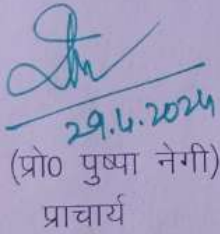 29.4.2024
(प्रो0 पुष्पा नेगी)
प्राचार्य